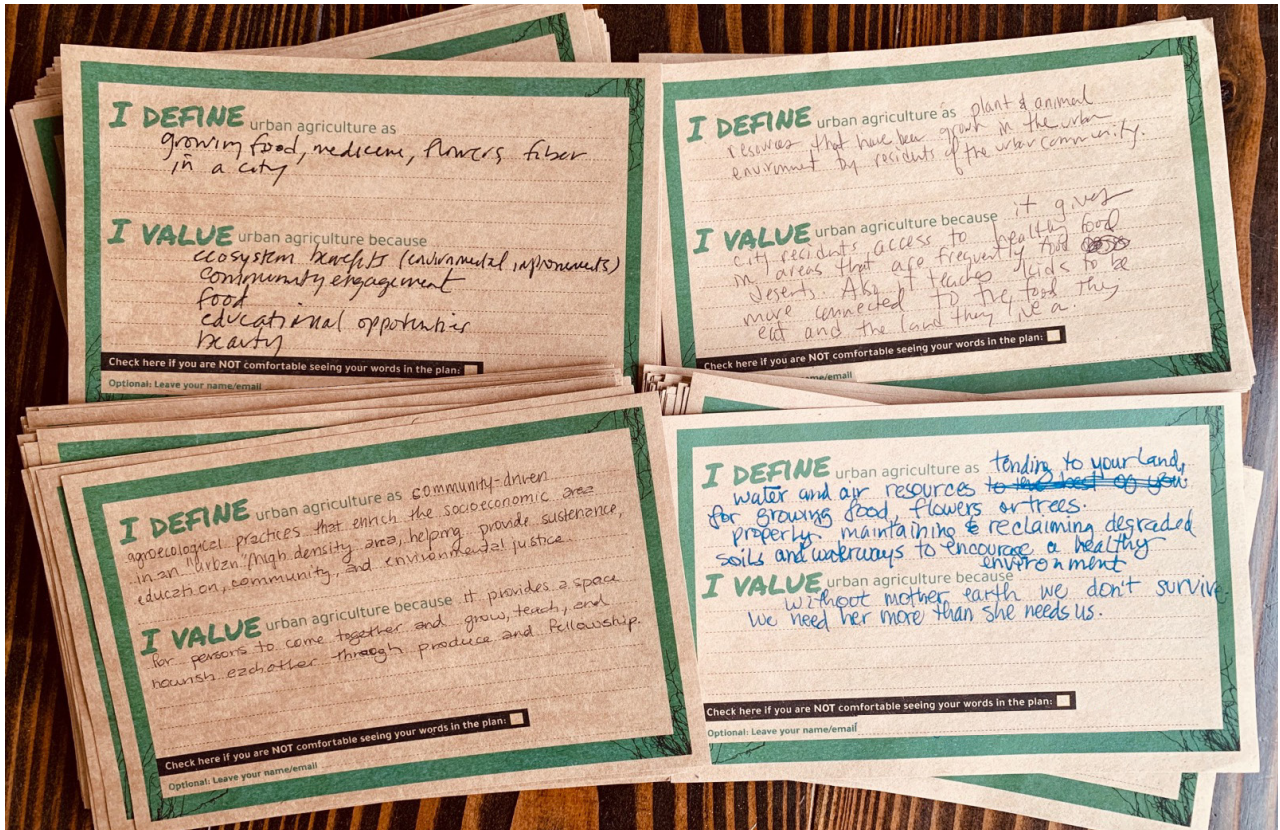 I DEFINE urban agriculture as
growing food, medicine, flowers fiber
in a city
I VALUE urban agriculture because
ecosystem benefits (environmental improvements)
community engagement
food
educational opportunities
beauty
Check here if you are NOT comfortable seeing your words in the plan:
Optional: Leave your name/email
I DEFINE urban agriculture as plant & animal
resources that have been grown in the urban
environment by residents of the urban community.
I VALUE urban agriculture because it gives
city residents access to healthy food
in areas that are frequently food
deserts. Also it teaches kids to be
more connected to the food they
eat and the land they live
Check here if you are NOT comfortable seeing your words in the plan:
name/email
I DEFINE urban agriculture as community-driven
agroecological practices that enrich the socioeconomic area
in an "urban"/high density area, helping provide sustenance,
education, community, and environmental justice.
I VALUE urban agriculture because it provides a space
for persons to come together and grow, teach, and
nourish eachother through produce and fellowship.
Check here if you are NOT comfortable seeing your words in the plan:
Optional: Leave your name/email
I DEFINE urban agriculture as tending to your land,
water and air resources
for growing food, flowers or trees.
properly maintaining & reclaiming degraded
soils and waterways to encourage a healthy
environment
I VALUE urban agriculture because
without mother earth we don't survive.
We need her more than she needs us.
Check here if you are NOT comfortable seeing your words in the plan:
Optional: Leave your name/email